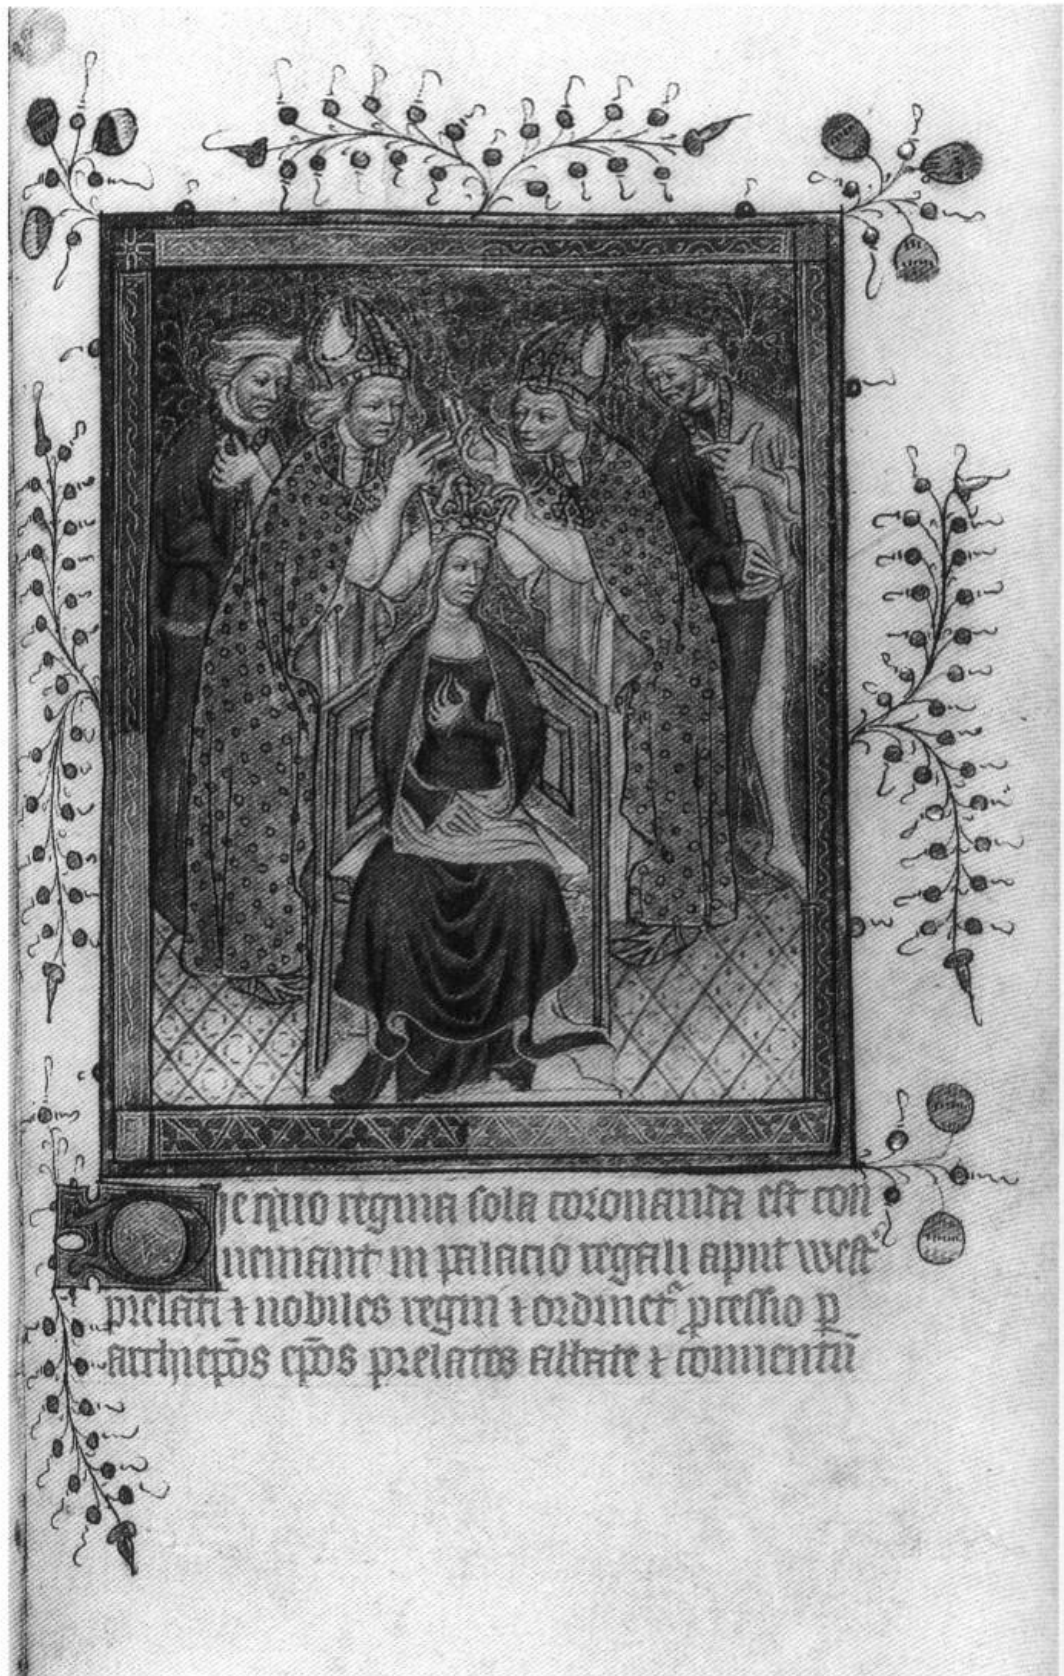 Die quo regina sola coronanda est con
ueniant in palacio regali aput west̾
prelati ⁊ nobiles regni ⁊ ordinet᷑ ꝓcessio ꝑ
archiep̄os ep̄os prelatos abbate ⁊ conuentū